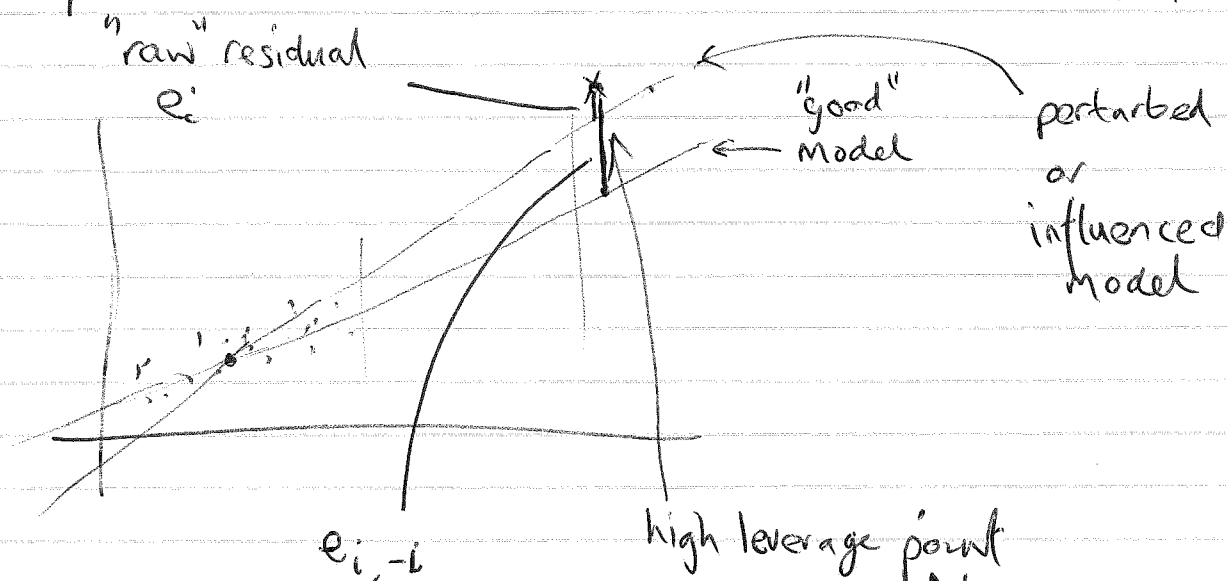 "raw" residual
ei
"good"
model
perturbed
or
influenced
model
ei,-i
high leverage point